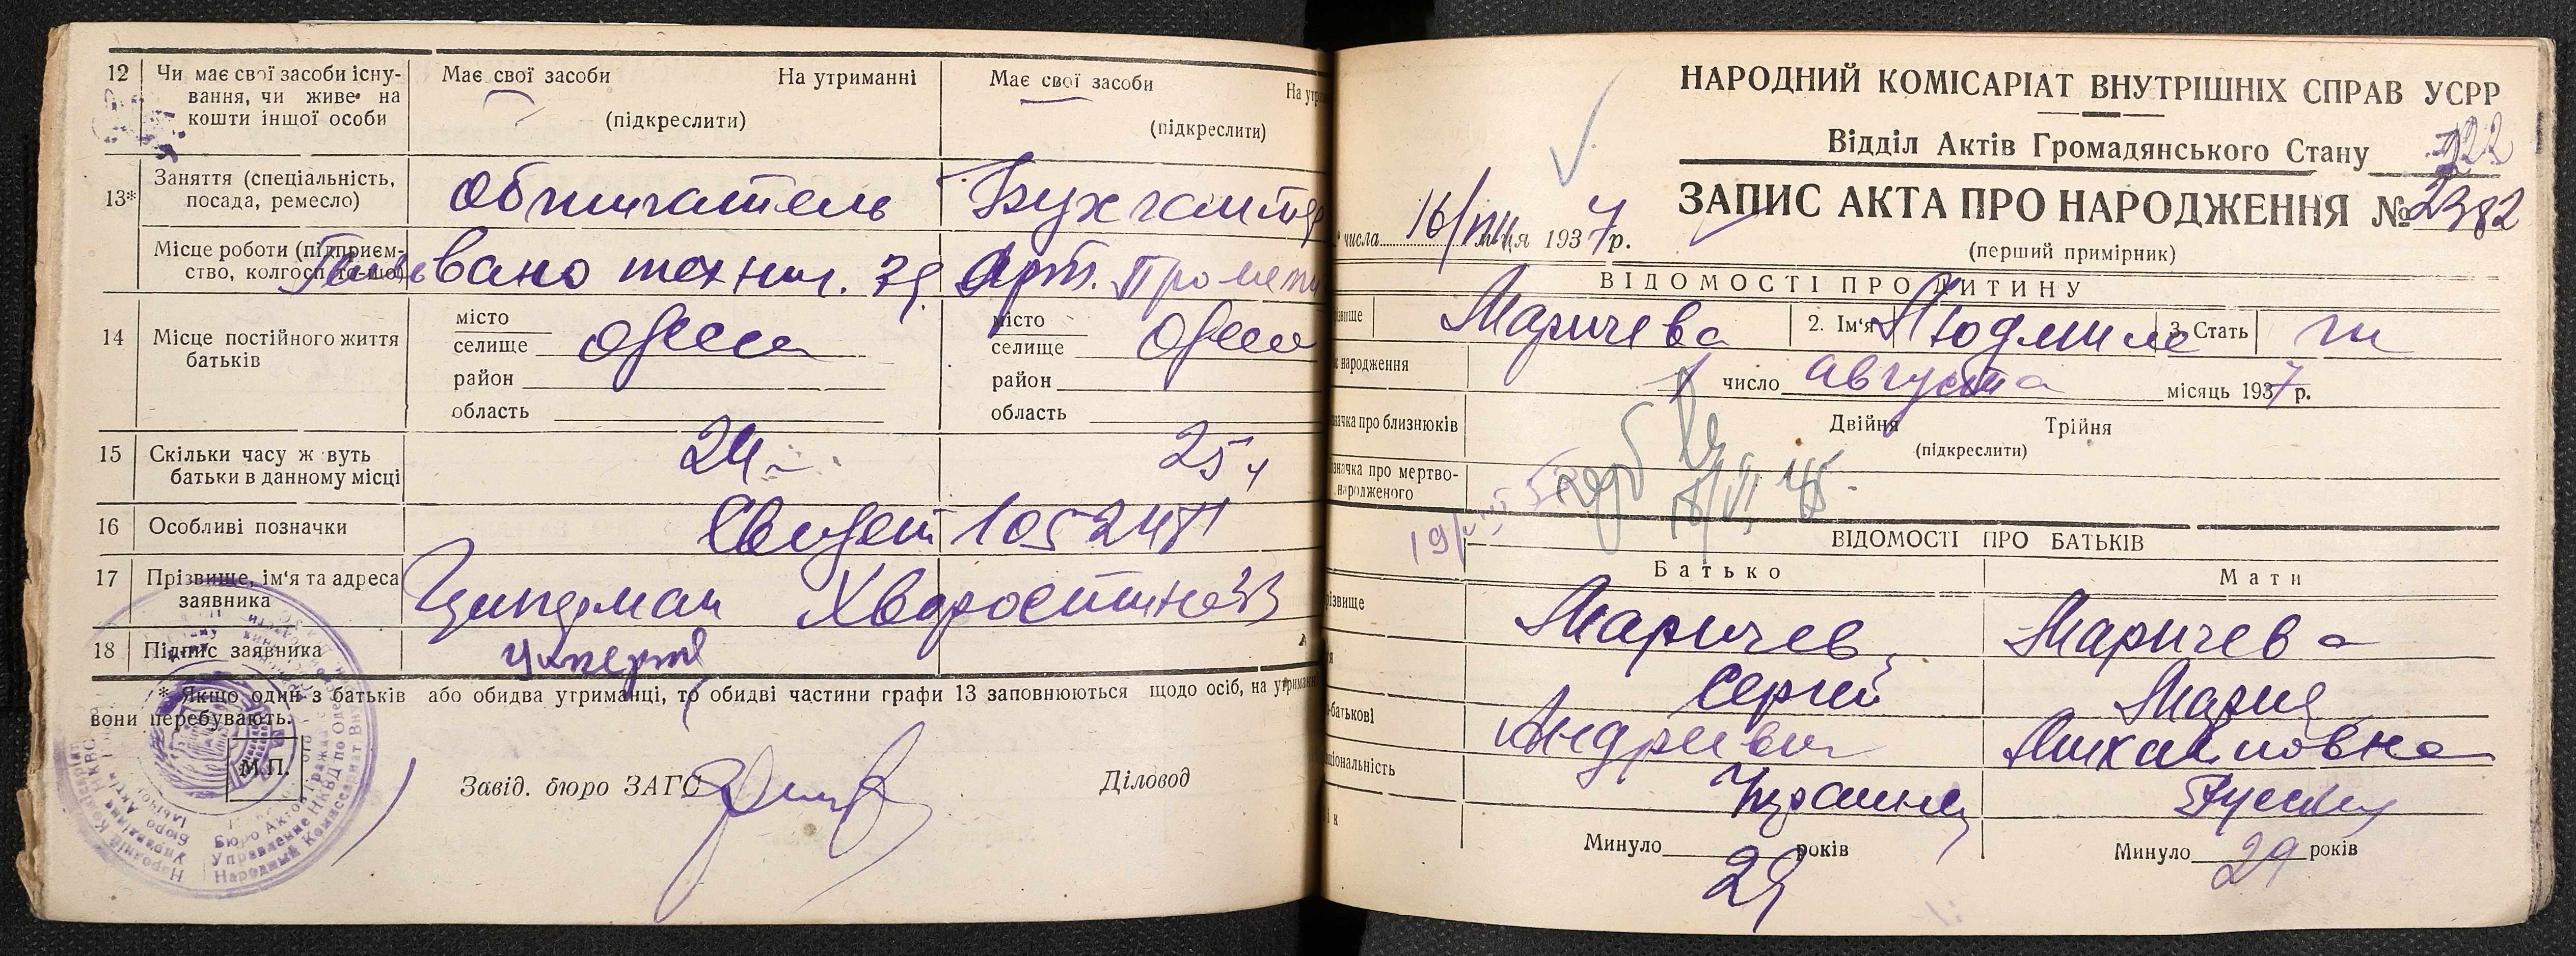 12 Чи має свої засоби існу-
вання, чи живе на
кошти іншої особи
Має свої засоби На утриманні
(підкреслити)
Має свої засоби
(підкреслити)
13* Заняття (спеціальність,
посада, ремесло)
Бухгалтер
Місце роботи (підприєм-
ство, колгосп та-що)
Гальвано технич. Арт.
14 Місце постійного життя
батьків
місто
селище Одесса
район
область
місто
селище Одесса
район
область
15 Скільки часу ж вуть
батьки в данному місці
24 25
16 Особливі позначки
Свидет
17 Прізвище, ім'я та адреса
заявника
Циперман
18 Підпис заявника
Циперм
* Якщо один з батьків або обидва утриманці, то обидві частини графи 13 заповнюються щодо осіб, на утриман
вони перебувають.
М.П.
Завід. бюро ЗАГС Діловод
НАРОДНИЙ КОМІСАРІАТ ВНУТРІШНІХ СПРАВ УСРР
Відділ Актів Громадянського Стану
ЗАПИС АКТА ПРО НАРОДЖЕННЯ № 2382
числа 16/VIII м-ця 1937 р.
(перший примірник)
ВІДОМОСТІ ПРО ДИТИНУ
Маричева 2. Ім'я Людмила 3. Стать ж
народження
1 число августа місяць 1937 р.
значка про близнюків
Двійня Трійня
(підкреслити)
значка про мертво-
народженого
ВІДОМОСТІ ПРО БАТЬКІВ
Батько Мати
Маричев Маричева
Сергей Мария
Андреевич Михайловна
Украинец Русская
Минуло 29 років
Минуло 29 років